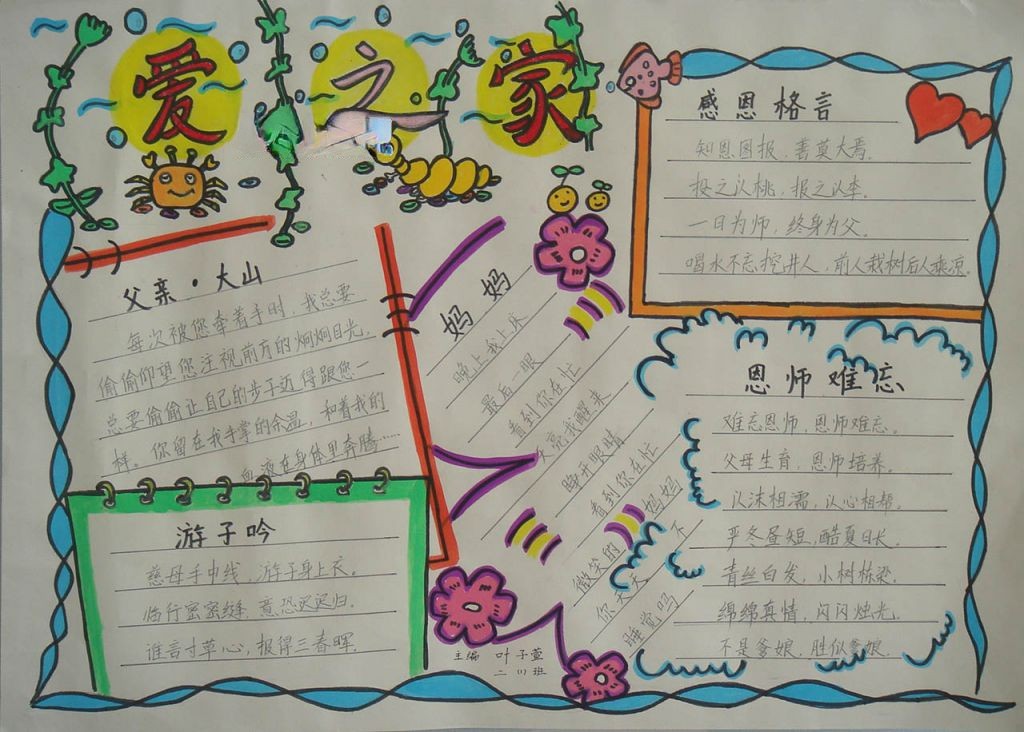 爱之家
父亲·大山
每次被您牵着手时，我总要
偷偷仰望您注视前方的炯炯目光，
总要偷偷让自己的步子迈得跟您一
样。你留在我手掌的余温，和着我的
血液在身体里奔腾……
游子吟
慈母手中线，游子身上衣。
临行密密缝，意恐迟迟归。
谁言寸草心，报得三春晖。
妈妈
晚上我上床
最后一眼
看到你在忙
天亮我醒来
睁开眼睛
看到你在忙
微笑的妈妈
你天天不
睡觉吗
主编 叶子萱
二(1)班
感恩格言
知恩图报，善莫大焉。
投之以桃，报之以李。
一日为师，终身为父。
喝水不忘挖井人，前人栽树后人乘凉。
恩师难忘
难忘恩师，恩师难忘。
父母生育，恩师培养。
以沫相濡，以心相帮。
严冬昼短，酷夏日长。
青丝白发，小树栋梁。
绵绵真情，闪闪烛光。
不是爹娘，胜似爹娘。